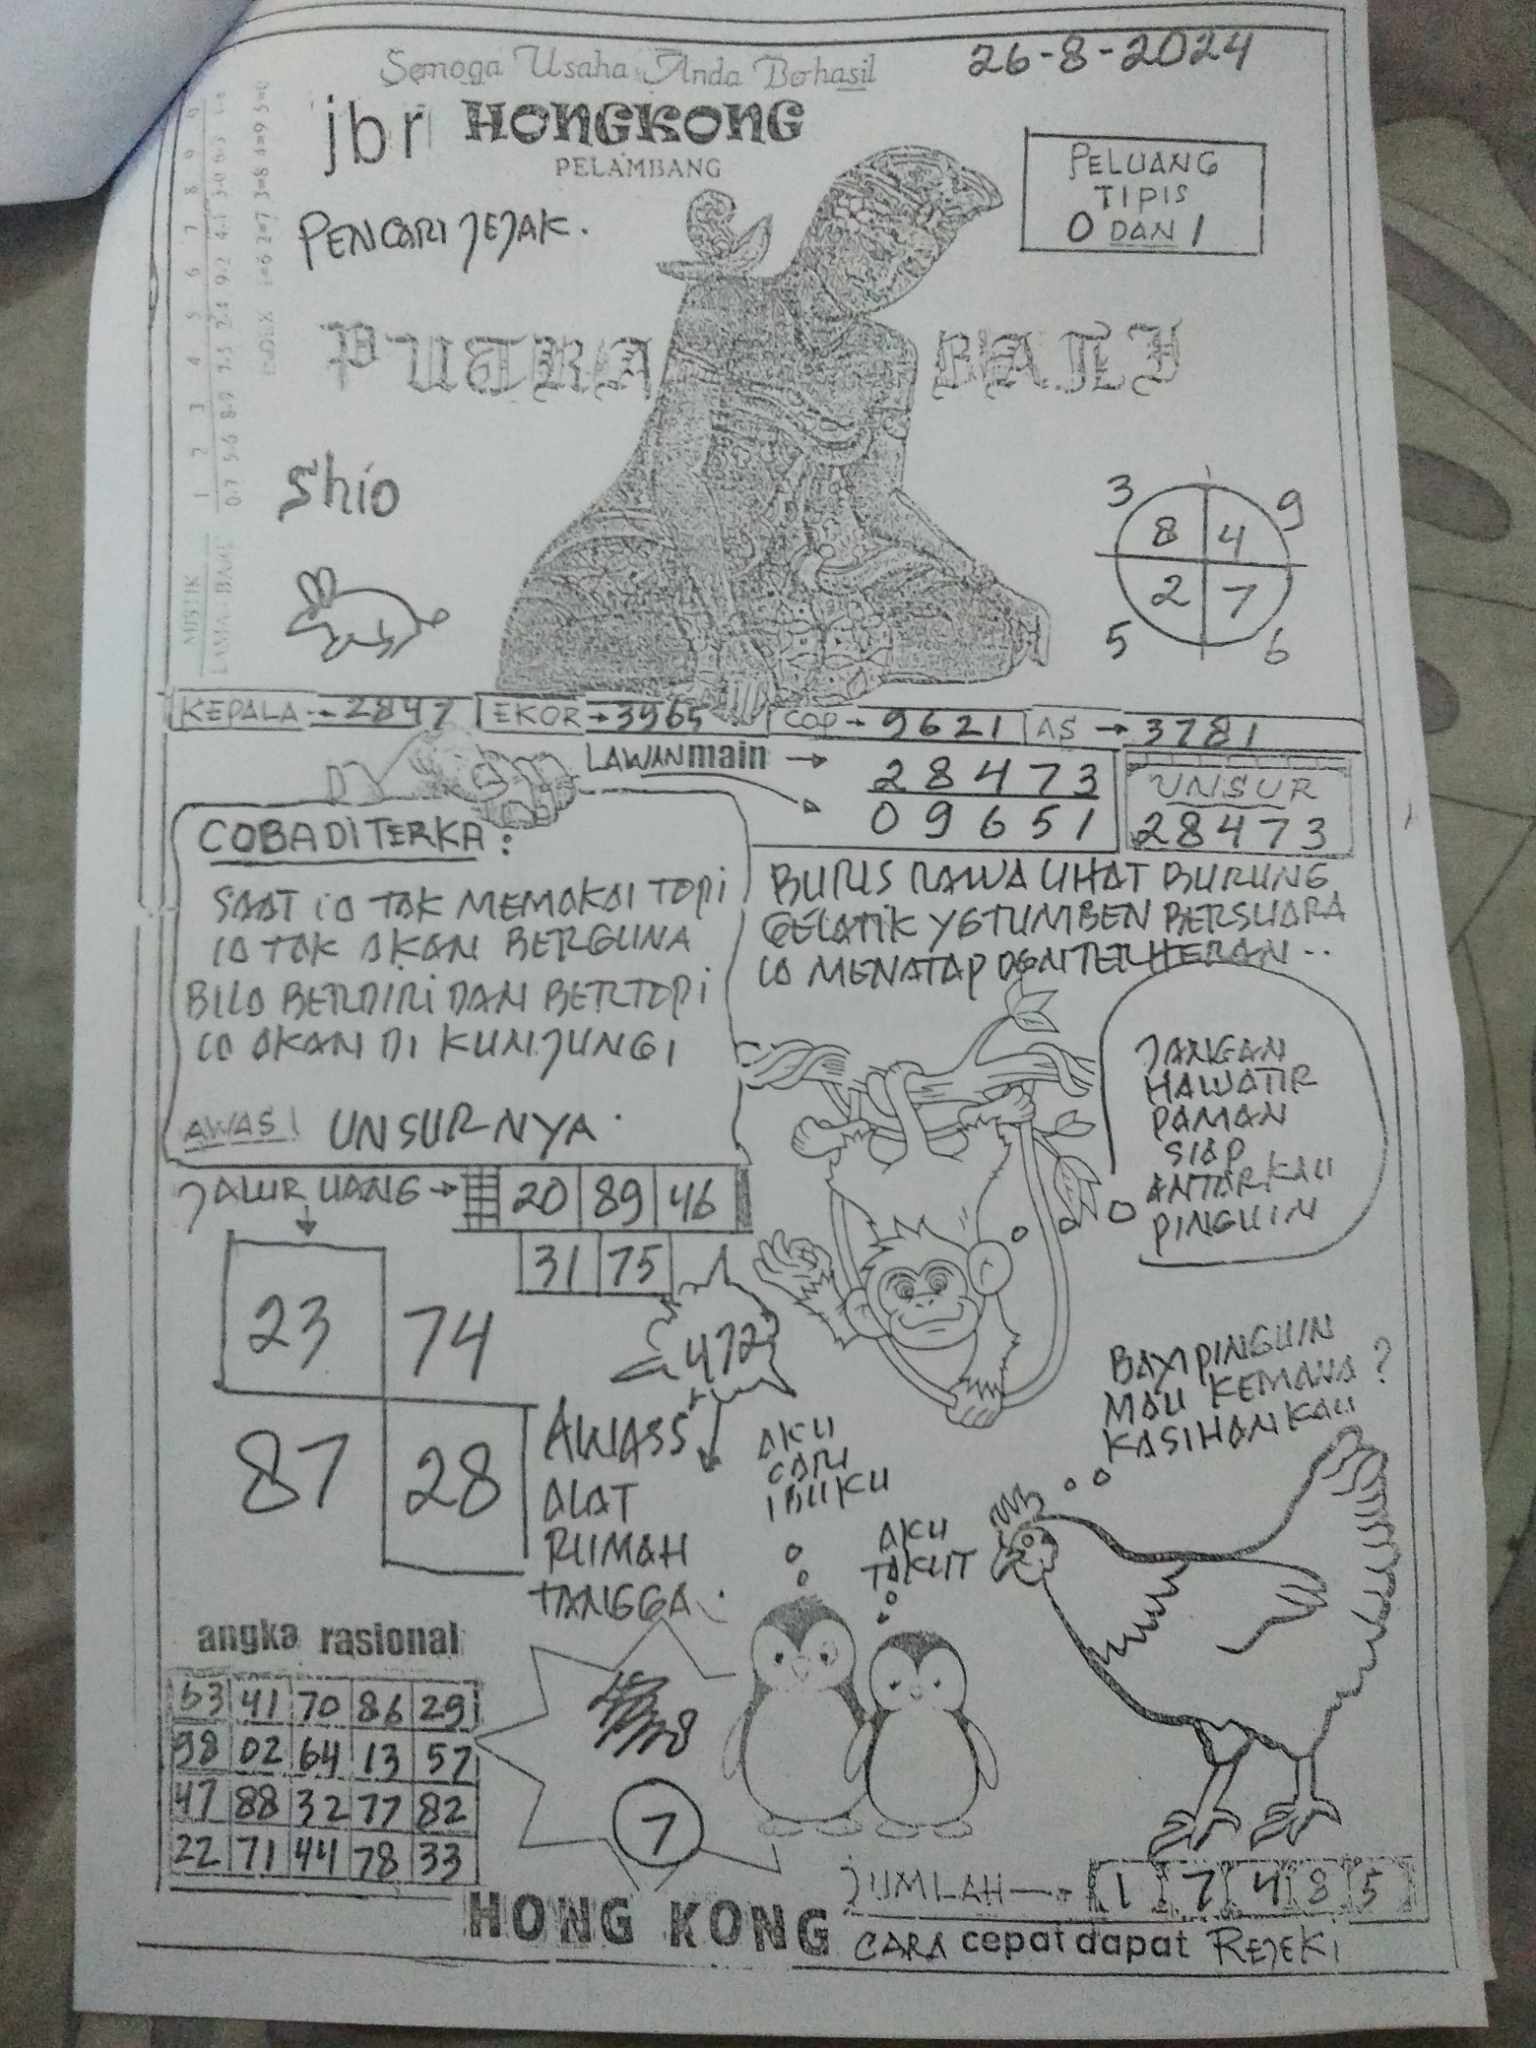 Semoga Usaha Anda Berhasil
26-8-2024
jbr HONGKONG
PELAMBANG
PENCARI JEJAK.
PELUANG
TIPIS
0 DAN 1
PUTRA BALI
Shio
3 9
8 4
2 7
5 6
KEPALA → 2847 EKOR → 3965 COP → 9621 AS → 3781
LAWAN main → 28473
09651
UNSUR
28473
COBA DI TERKA :
SAAT IA TAK MEMAKAI TOPI
IA TAK AKAN BERGUNA
BILA BERDIRI DAN BERTOPI
IA AKAN DI KUNJUNGI
AWAS! UNSURNYA.
BURIS RAWA LIHAT BURUNG
GELATIK YG TUMBEN BERSUARA
IA MENATAP DGN TERHERAN..
JANGAN
HAWATIR
PAMAN
SIAP
ANTAR KAU
PINGUIN
JALUR UANG → 20 89 46
31 75
23 74
87 28
472
AWASS
ALAT
RUMAH
TANGGA.
AKU
CARI
IBUKU
AKU
TAKUT
BAYI PINGUIN
MAU KEMANA ?
KASIHAN KAU
angka rasional
53 41 70 86 29
98 02 64 13 57
47 88 32 77 82
22 71 44 78 33
8
7
JUMLAH → 1 7 4 8 5
HONG KONG
CARA cepat dapat REJEKI